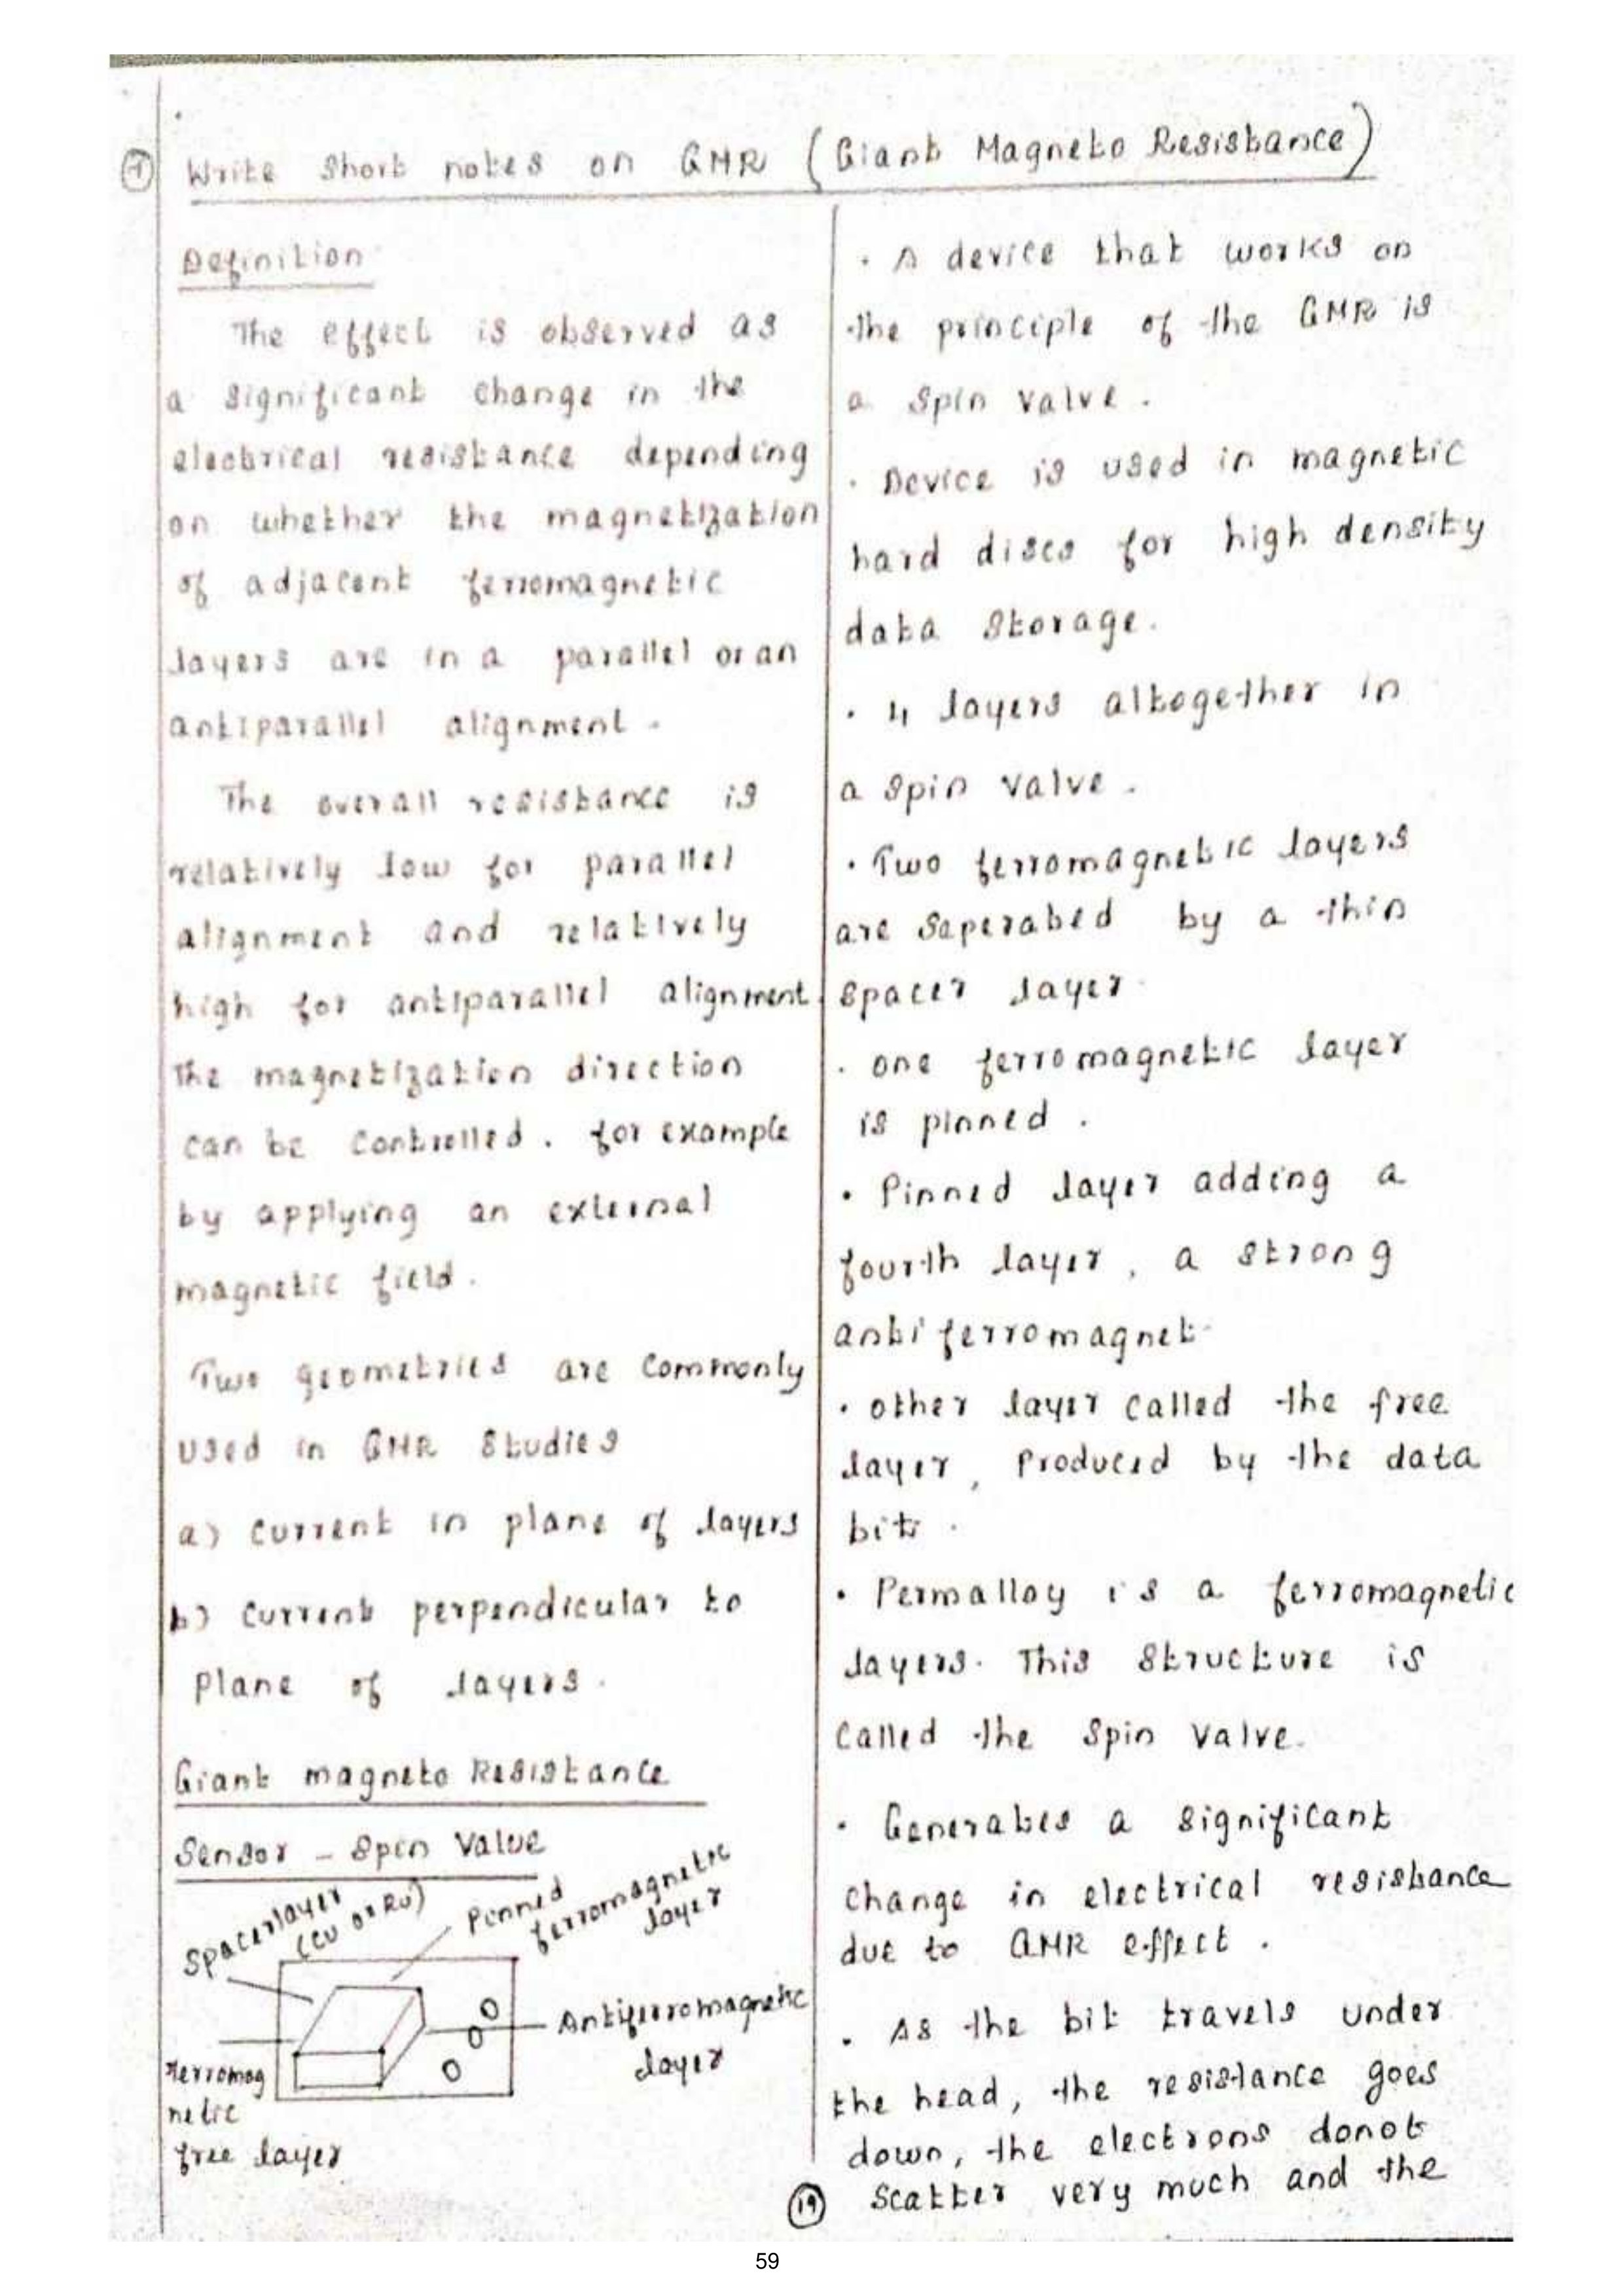 7 Write Short notes on GMR (Giant Magneto Resistance)
Definition
The effect is observed as
a significant change in the
electrical resistance depending
on whether the magnetization
of adjacent ferromagnetic
layers are in a parallel or an
antiparallel alignment.
The overall resistance is
relatively low for parallel
alignment and relatively
high for antiparallel alignment.
The magnetization direction
can be controlled. for example
by applying an external
magnetic field.
Two geometries are commonly
used in GMR studies
a) Current in plane of layers
b) Current perpendicular to
Plane of layers.
Giant magneto Resistance
Sensor - Spin Value
Spacer layer
(Cu or Ru)
Pinned
ferromagnetic
layer
Antiferromagnetic
layer
Ferromag
netic
free layer
. A device that works on
the principle of the GMR is
a Spin valve.
. Device is used in magnetic
hard discs for high density
data Storage.
. 4 layers altogether in
a spin valve.
. Two ferromagnetic layers
are Seperated by a thin
Spacer layer.
. one ferromagnetic layer
is pinned.
. Pinned layer adding a
fourth layer, a strong
antiferromagnet.
. other layer called the free
layer, Produced by the data
bit.
. Permalloy is a ferromagnetic
layers. This Structure is
Called the Spin Valve.
. Generates a significant
Change in electrical resistance
due to GMR effect.
. As the bit travels under
the head, the resistance goes
down, the electrons donot
Scatter very much and the
19
59